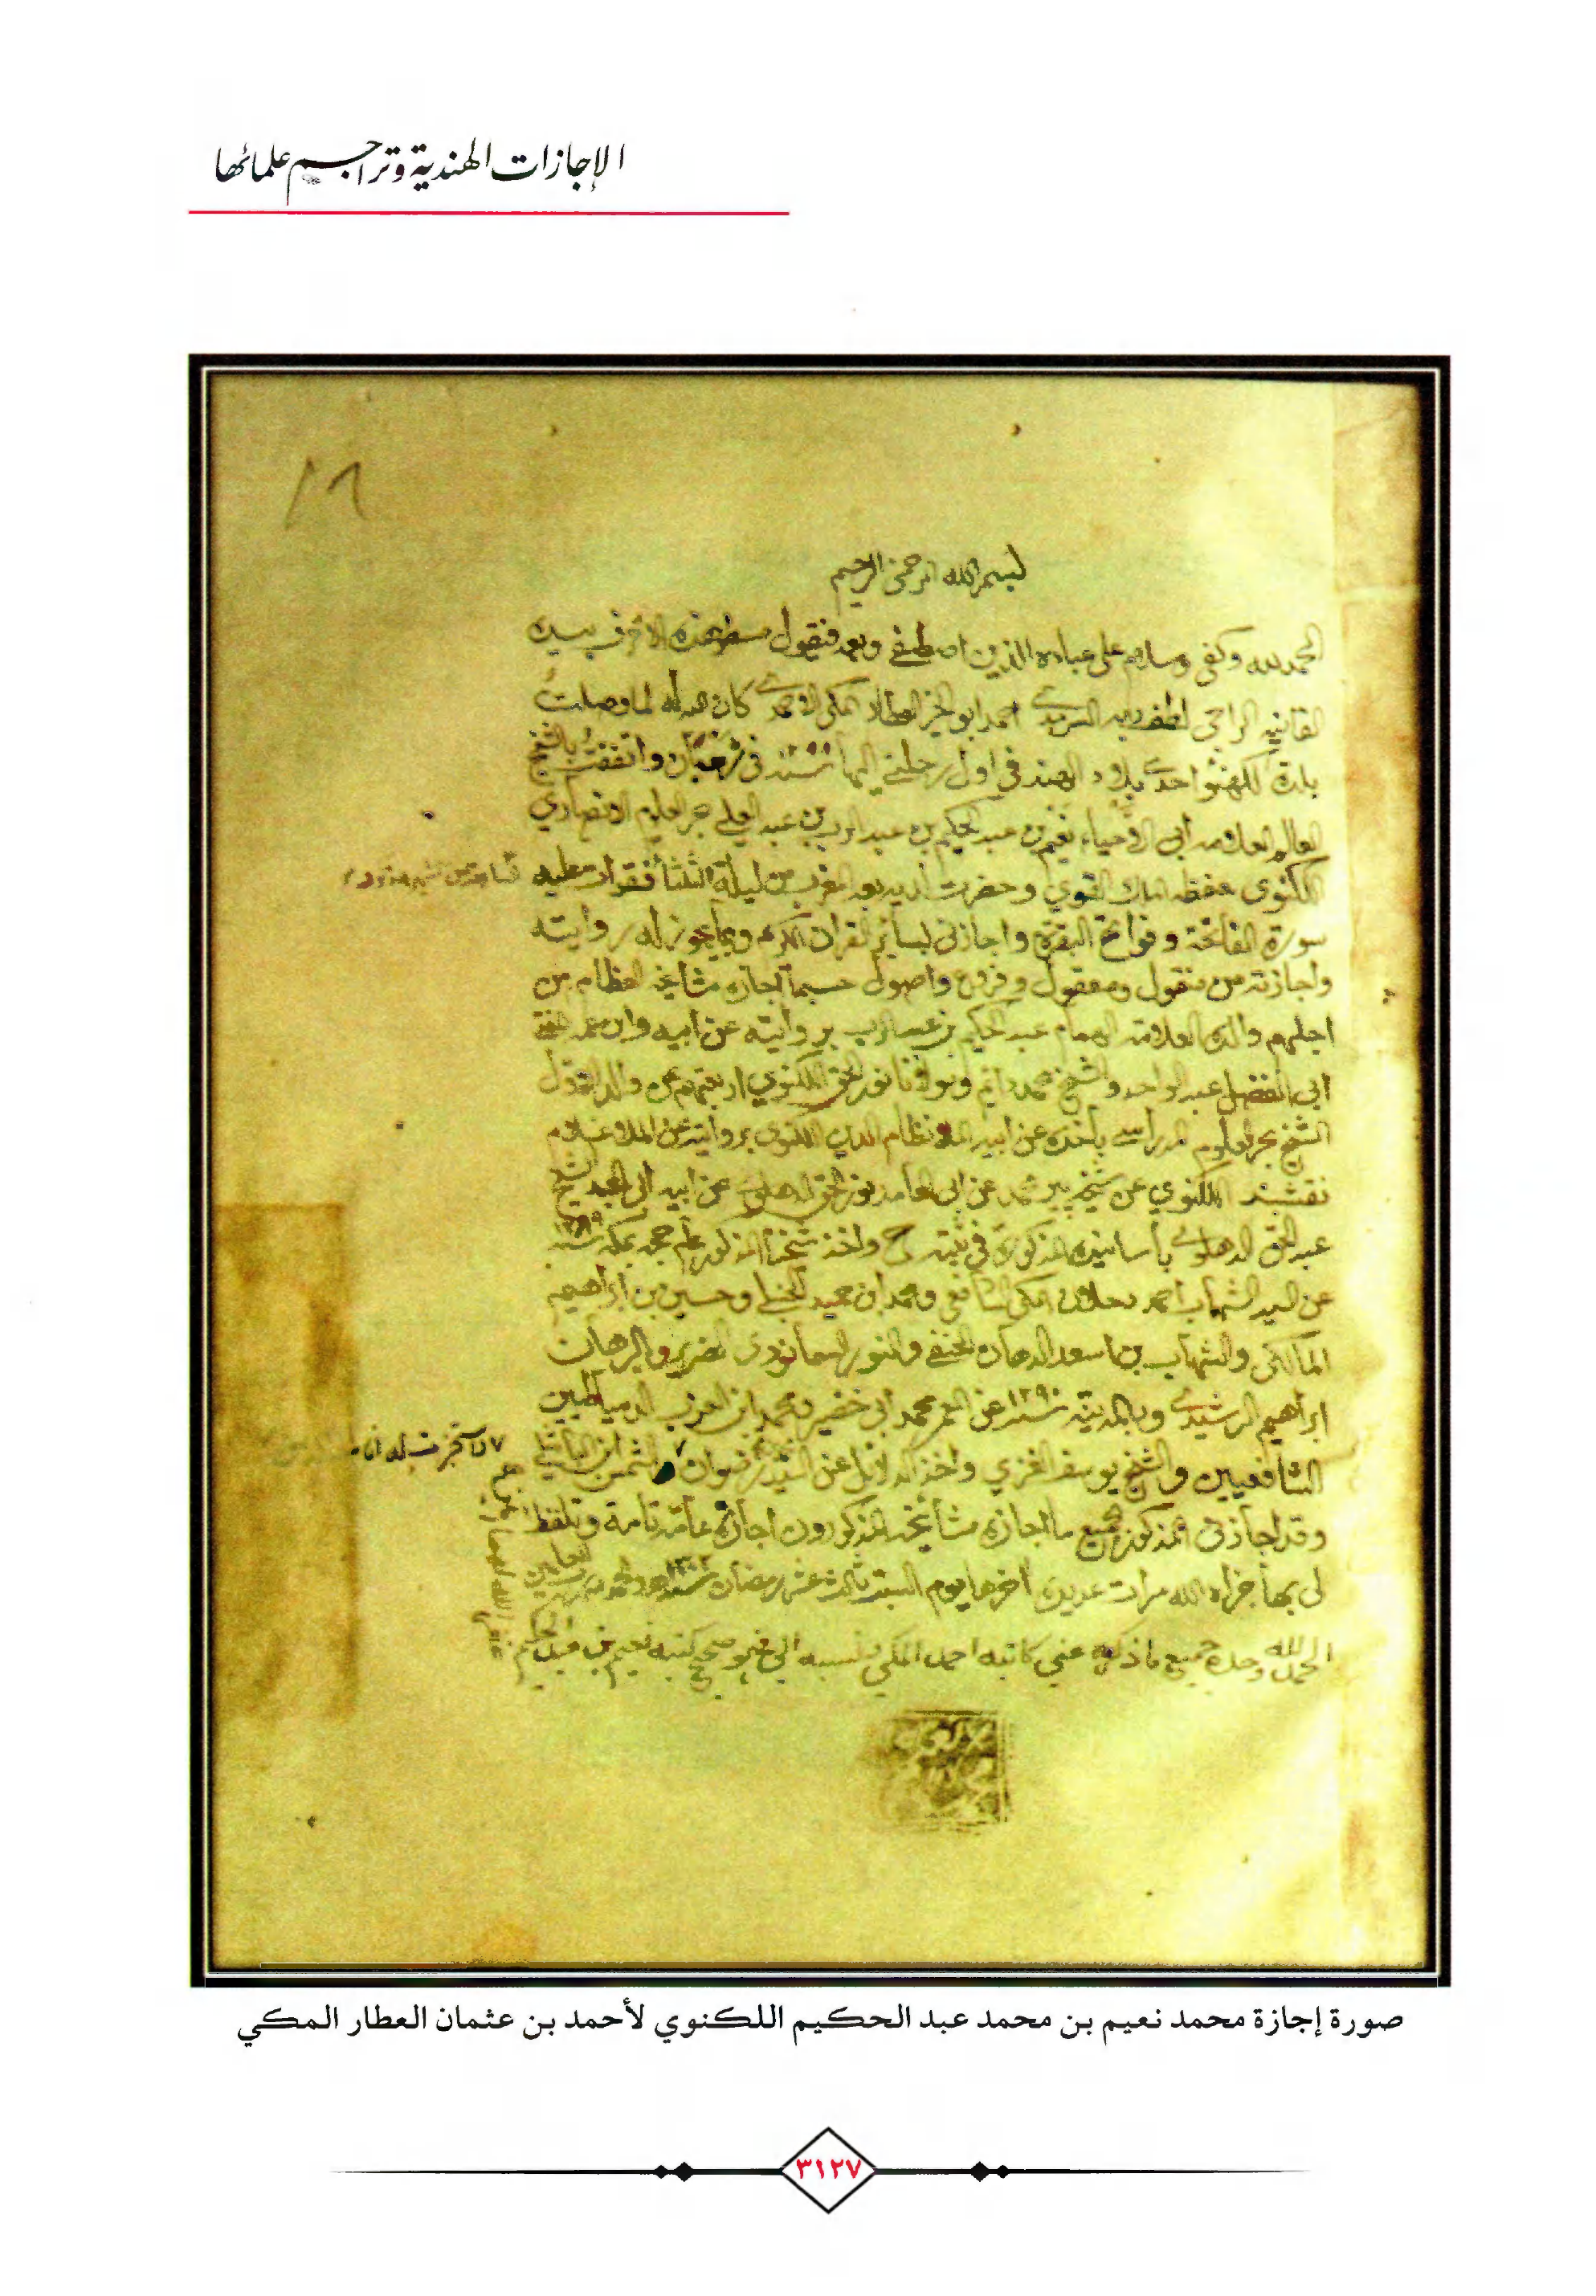 الإجازات الهندية وتراجم علمائها
١٩
بسم الله الرحمن الرحيم
الحمد لله وكفى وسلام على عباده الذين اصطفى وبعد فيقول مسطر هذه الاحرف بيده
الفانيه الراجي لطف ربه السرمدي احمد ابو الخير العطار المكي الاحمدي كان الله له لما وصلت
بلدة لكهنؤ احدى بلاد الهند في اول رحلتي اليها واتفقت بالشيخ
العالم العلامه ابي الاحياء نعيم بن عبد الحكيم بن عبد الرب بن عبد العلي بحر العلوم الانصاري
اللكنوي حفظه الملك القوي وحضرت لديه بعد المغرب من ليلة الثلثا فقرأت عليه
سورة الفاتحة وفواتح البقرة واجازني لسائر القران الكريم وبما يجوز له روايته
واجازته من منقول ومعقول وفروع واصول حسبما اجازه مشايخه العظام من
اجلهم والده العلامه الهمام عبد الحكيم بن عبد الرب بروايته عن ابيه وابن عمه
ابي الفضل عبد الواحد والشيخ محمد دائم ومولانا نور الحق اللكنوي اربعتهم عن والد الاول
الشيخ بحر العلوم المدراسي بأخذه عن ابيه الملا نظام الدين اللكنوي بروايته عن الملا غلام
نقشبند اللكنوي عن شيخه پير محمد عن ابي السعادة نور الحق الدهلوي عن ابيه ابي المجد الشيخ
عبد الحق الدهلوي بأسانيده المذكورة في ثبته ح واخذ شيخنا المذكور عام حجه بمكة سنة ١٢٨٩
عن السيد الشهاب احمد دحلان المكي الشافعي ومحمد بن حميد الحنبلي وحسين بن ابراهيم
المالكي والشهاب بن اسعد الدهان الحنفي والنور السمانودي الضرير والبرهان
ابراهيم الرشيدي وبالمدينة سنة ١٢٩٠ عن المعمر محمد ابي خضير ومحمد بن العزب الدمياطيين
الشافعيين والشيخ يوسف الغزي واخذ الدلائل عن السيد رضوان والشمس
وقد اجازني المذكور بجميع ما اجازه مشايخه المذكورون اجازة عامة تامة وتلفظ
لي بها جزاه الله مرات عديدة اخرها يوم السبت ثالث عشر رمضان
الحمد لله وحده جميع ما ذكره عني كاتبه احمد المكي نسبه الي فهو صحيح كتبه نعيم بن عبد الحكيم
صورة إجازة محمد نعيم بن محمد عبد الحكيم اللكنوي لأحمد بن عثمان العطار المكي
٣١٢٧